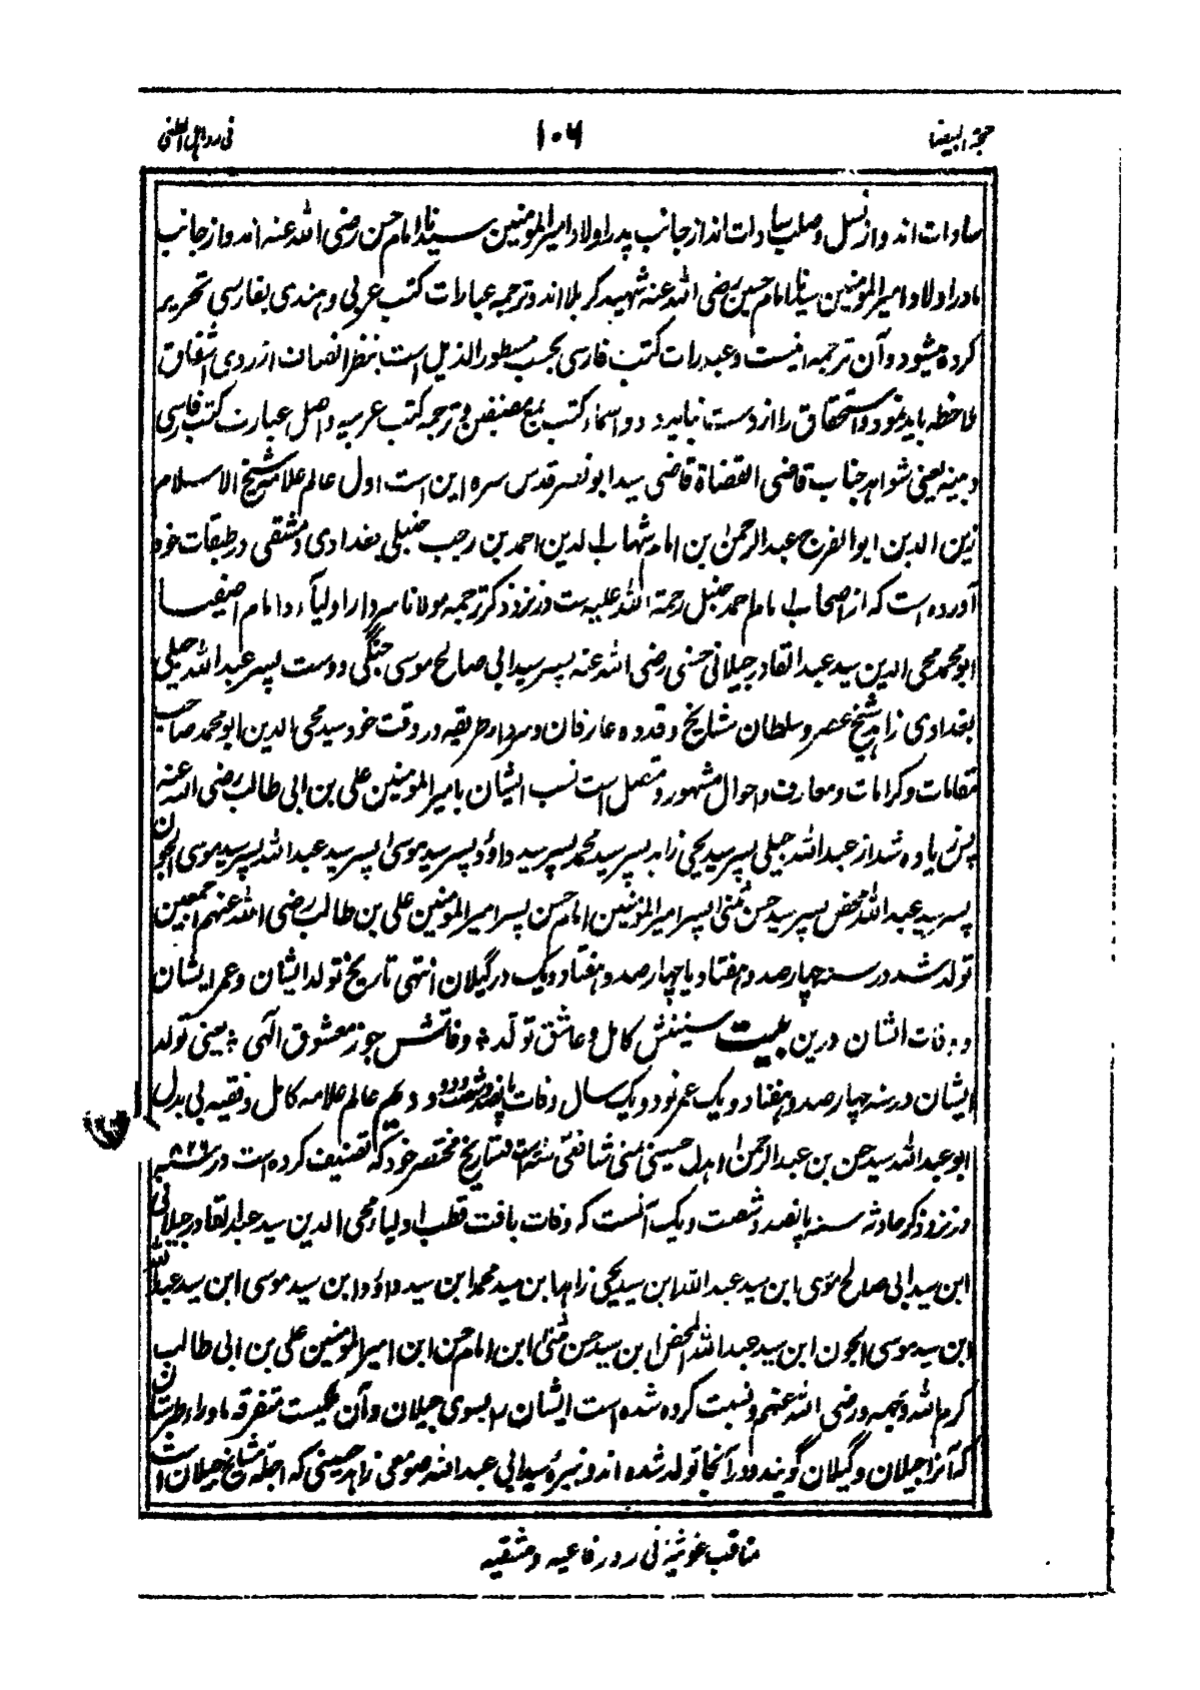 حجة البیضا ۱۰۶ فی رد اہل الطغی
سادات اند و از نسل و صلب سادات اند از جانب پدر اولاد امیر المومنین سیدنا امام حسن رضی اللہ عنہ اند و از جانب
مادر اولاد امیر المومنین سیدنا امام حسین رضی اللہ عنہ شہید کربلا اند و ترجمہ عبارات کتب عربی و ہندی بفارسی تحریر
کردہ میشود و آن ترجمہ اینست و عبارات کتب فارسی بحسب مسطور الذیل است بنظر انصاف از روی اشفاق
ملاحظہ باید نمود و استحقاق را از دست نباید داد و اسماء کتب مع مصنفین و ترجمہ کتب عربیہ و اصل عبارت کتب فارسی
و بینہ یعنی شواہد جناب قاضی القضاة قاضی سید ابو نصر قدس سرہ این است اول عالم علامہ شیخ الاسلام
زین الدین ابو الفرج عبد الرحمٰن بن امام شہاب الدین احمد بن رجب حنبلی بغدادی دمشقی در طبقات خود
آوردہ است کہ از اصحاب امام احمد حنبل رحمة اللہ علیہ ست و نزد ذکر ترجمہ مولانا سردار اولیآء و امام اصفیا
ابو محمد محی الدین سید عبد القادر جیلانی حسنی رضی اللہ عنہ پسر سید ابی صالح موسی جنگی دوست پسر عبد اللہ جیلی
بغدادی زاہد شیخ عصر و سلطان مشایخ و قدوہ عارفان و سردار طریقہ در وقت خود سید محی الدین ابو محمد صاحب
مقامات و کرامات و معارف و احوال مشہور و متصل است نسب ایشان با میر المومنین علی بن ابی طالب رضی اللہ عنہ
پس زیادہ شد از عبد اللہ جیلی پسر سید یحیی زاہد پسر سید محمد پسر سید داؤد پسر سید موسیٰ پسر سید عبد اللہ پسر سید موسی الجون
پسر سید عبد اللہ محض پسر سید حسن مثنیٰ پسر امیر المومنین امام حسن پسر امیر المومنین علی بن طالب رضی اللہ عنہم اجمعین
تولد شد در سنہ چہار صد و ہفتاد یا چہار صد و ہفتاد و یک در گیلان انتہی تاریخ تولد ایشان و عمر ایشان
و وفات ایشان درین بیت سنینش کامل و عاشق تولد * وفاتش جوز معشوق الٰہی * یعنی تولد
ایشان در سنہ چہار صد و ہفتاد و یک عمر نود و یک سال وفات پانصد و شصت و دو و دویم عالم علامہ کامل و فقیہ بی بدل
ابو عبد اللہ سید حسن بن عبد الرحمٰن اہدل حسینی یمنی شافعی است در تاریخ مختصر خود کہ تصنیف کردہ است در سنہ
و نزد ذکر حادثہ سنہ پانصد و شصت و یک آنست کہ وفات یافت قطب اولیاء محی الدین سید عبد القادر جیلانی
ابن سید ابی صالح موسی ابن سید عبد اللہ ابن سید یحیی زاہد ابن سید محمد ابن سید داؤد ابن سید موسی ابن سید عبد اللہ
ابن سید موسی الجون ابن سید عبد اللہ المحض ابن سید حسن مثنی ابن امام حسن ابن امیر المومنین علی بن ابی طالب
کرم اللہ وجہہ و رضی اللہ عنہم و نسبت کردہ شدہ است ایشان را بسوی جیلان و آن ملکیست متفرقہ ماوراء طبرستان
کہ آنرا جیلان و گیلان گویند و در آنجا تولد شدہ اند و نبیرۂ سید ابی عبد اللہ صومعی زاہد حسینی کہ اجلہ مشایخ جیلان است
مناقب غوثیہ فی رد رفاعیہ دمشقیہ